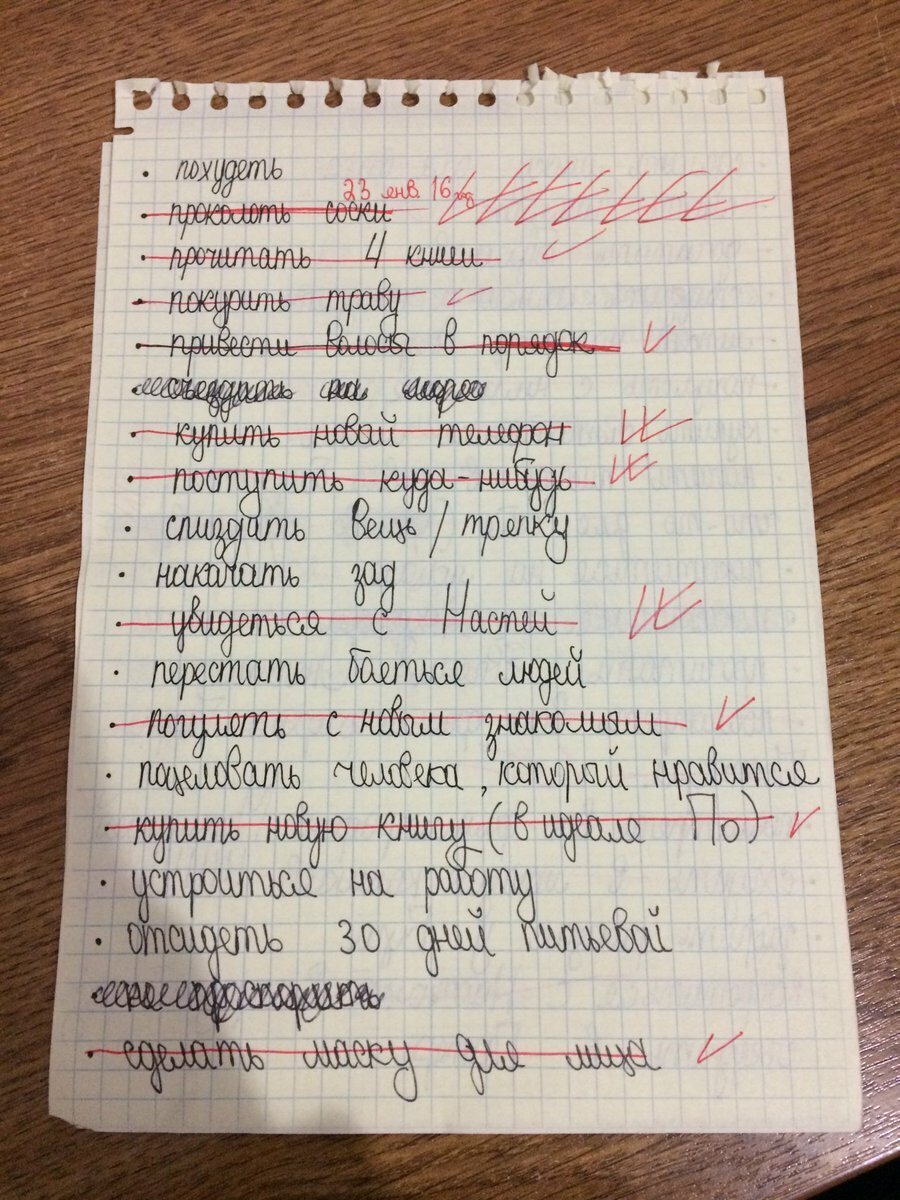 · похудеть
23 янв. 16 год
· проколоть соски
· прочитать 4 книги
· покурить траву
· привести волосы в порядок
съездить на море
· купить новай телефон
· поступить куда-нибудь
· спиздать вещь / тряпку
· накачать зад
· увидеться с Настей
· перестать баеться людей
· погулять с новым знакомым
· поцеловать человека, который нравится
· купить новую книгу (в идеале По)
· устроиться на работу
· отсидеть 30 дней питьевой
· сделать маску для лица